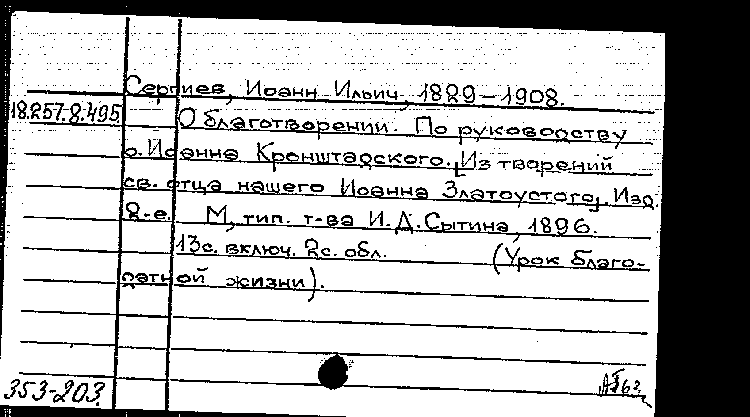 Сергиев, Иоанн Ильич, 1829–1908.
18.257.8.495
О благотворении. По руководству
о. Иоанна Кронштадского. [Из творений
св. отца нашего Иоанна Златоустого]. Изд.
2-е. М, тип. т-ва И. Д. Сытина, 1896.
13с. включ. 2с. обл. (Урок благо-
датной жизни).
353-203.